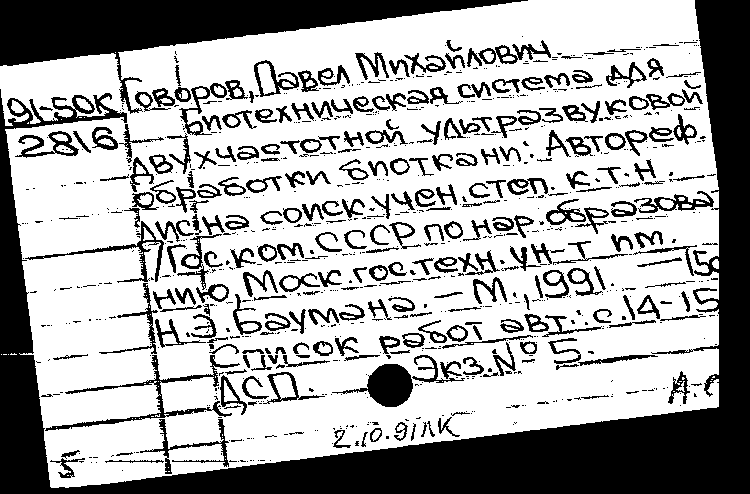 91-50К Говоров, Павел Михайлович
2816 Биотехническая система для
двухчастотной ультразвуковой
обработки биоткани: Автореф.
дис. на соиск. учен. степ. к.т.н.
/Гос. ком. СССР по нар. образова
нию, Моск. гос. техн. ун-т им.
Н.Э. Баумана. — М., 1991. — 15с
Список работ авт.: с. 14-15
ДСП. Экз. № 5.
2.10.91ЛК
5